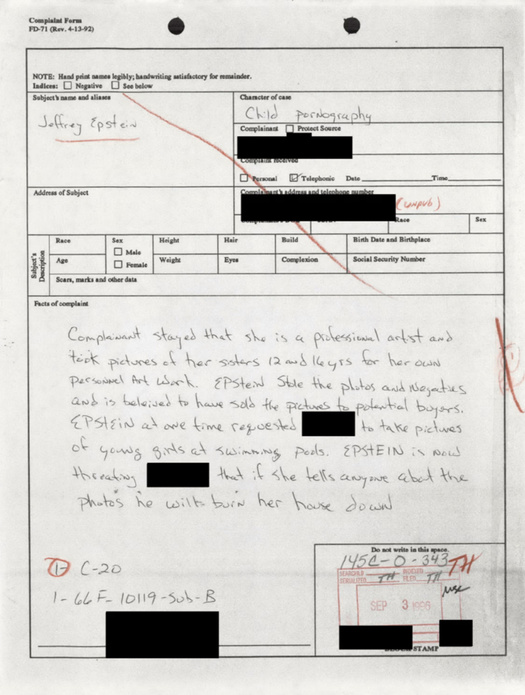 Complaint Form
FD-71 (Rev. 4-13-92)
NOTE: Hand print names legibly; handwriting satisfactory for remainder.
Indices: Negative See below
Subject's name and aliases
Jeffrey Epstein
Character of case
Child Pornography
Complainant Protect Source
Complaint received
Personal Telephonic Date Time
Address of Subject
Complainant's address and telephone number
(unpub)
Race Sex
Subject's Description
Race Sex Height Hair Build Birth Date and Birthplace
Male
Female
Age Weight Eyes Complexion Social Security Number
Scars, marks and other data
Facts of complaint
Complainant stayed that she is a professional artist and
took pictures of her sisters 12 and 16 yrs for her own
personal Art work. EPstein Stole the photos and Negatives
and is beleived to have sold the pictures to potential buyers.
EPSTEIN at one time requested to take pictures
of young girls at swimming pools. EPSTEIN is now
threating that if she tells anyone abot the
photos he will burn her house down
1- C-20
1-66F-10119-Sub-B
Do not write in this space.
145C-0-343
TH
TH TH
SEP 3 1996
STAMP